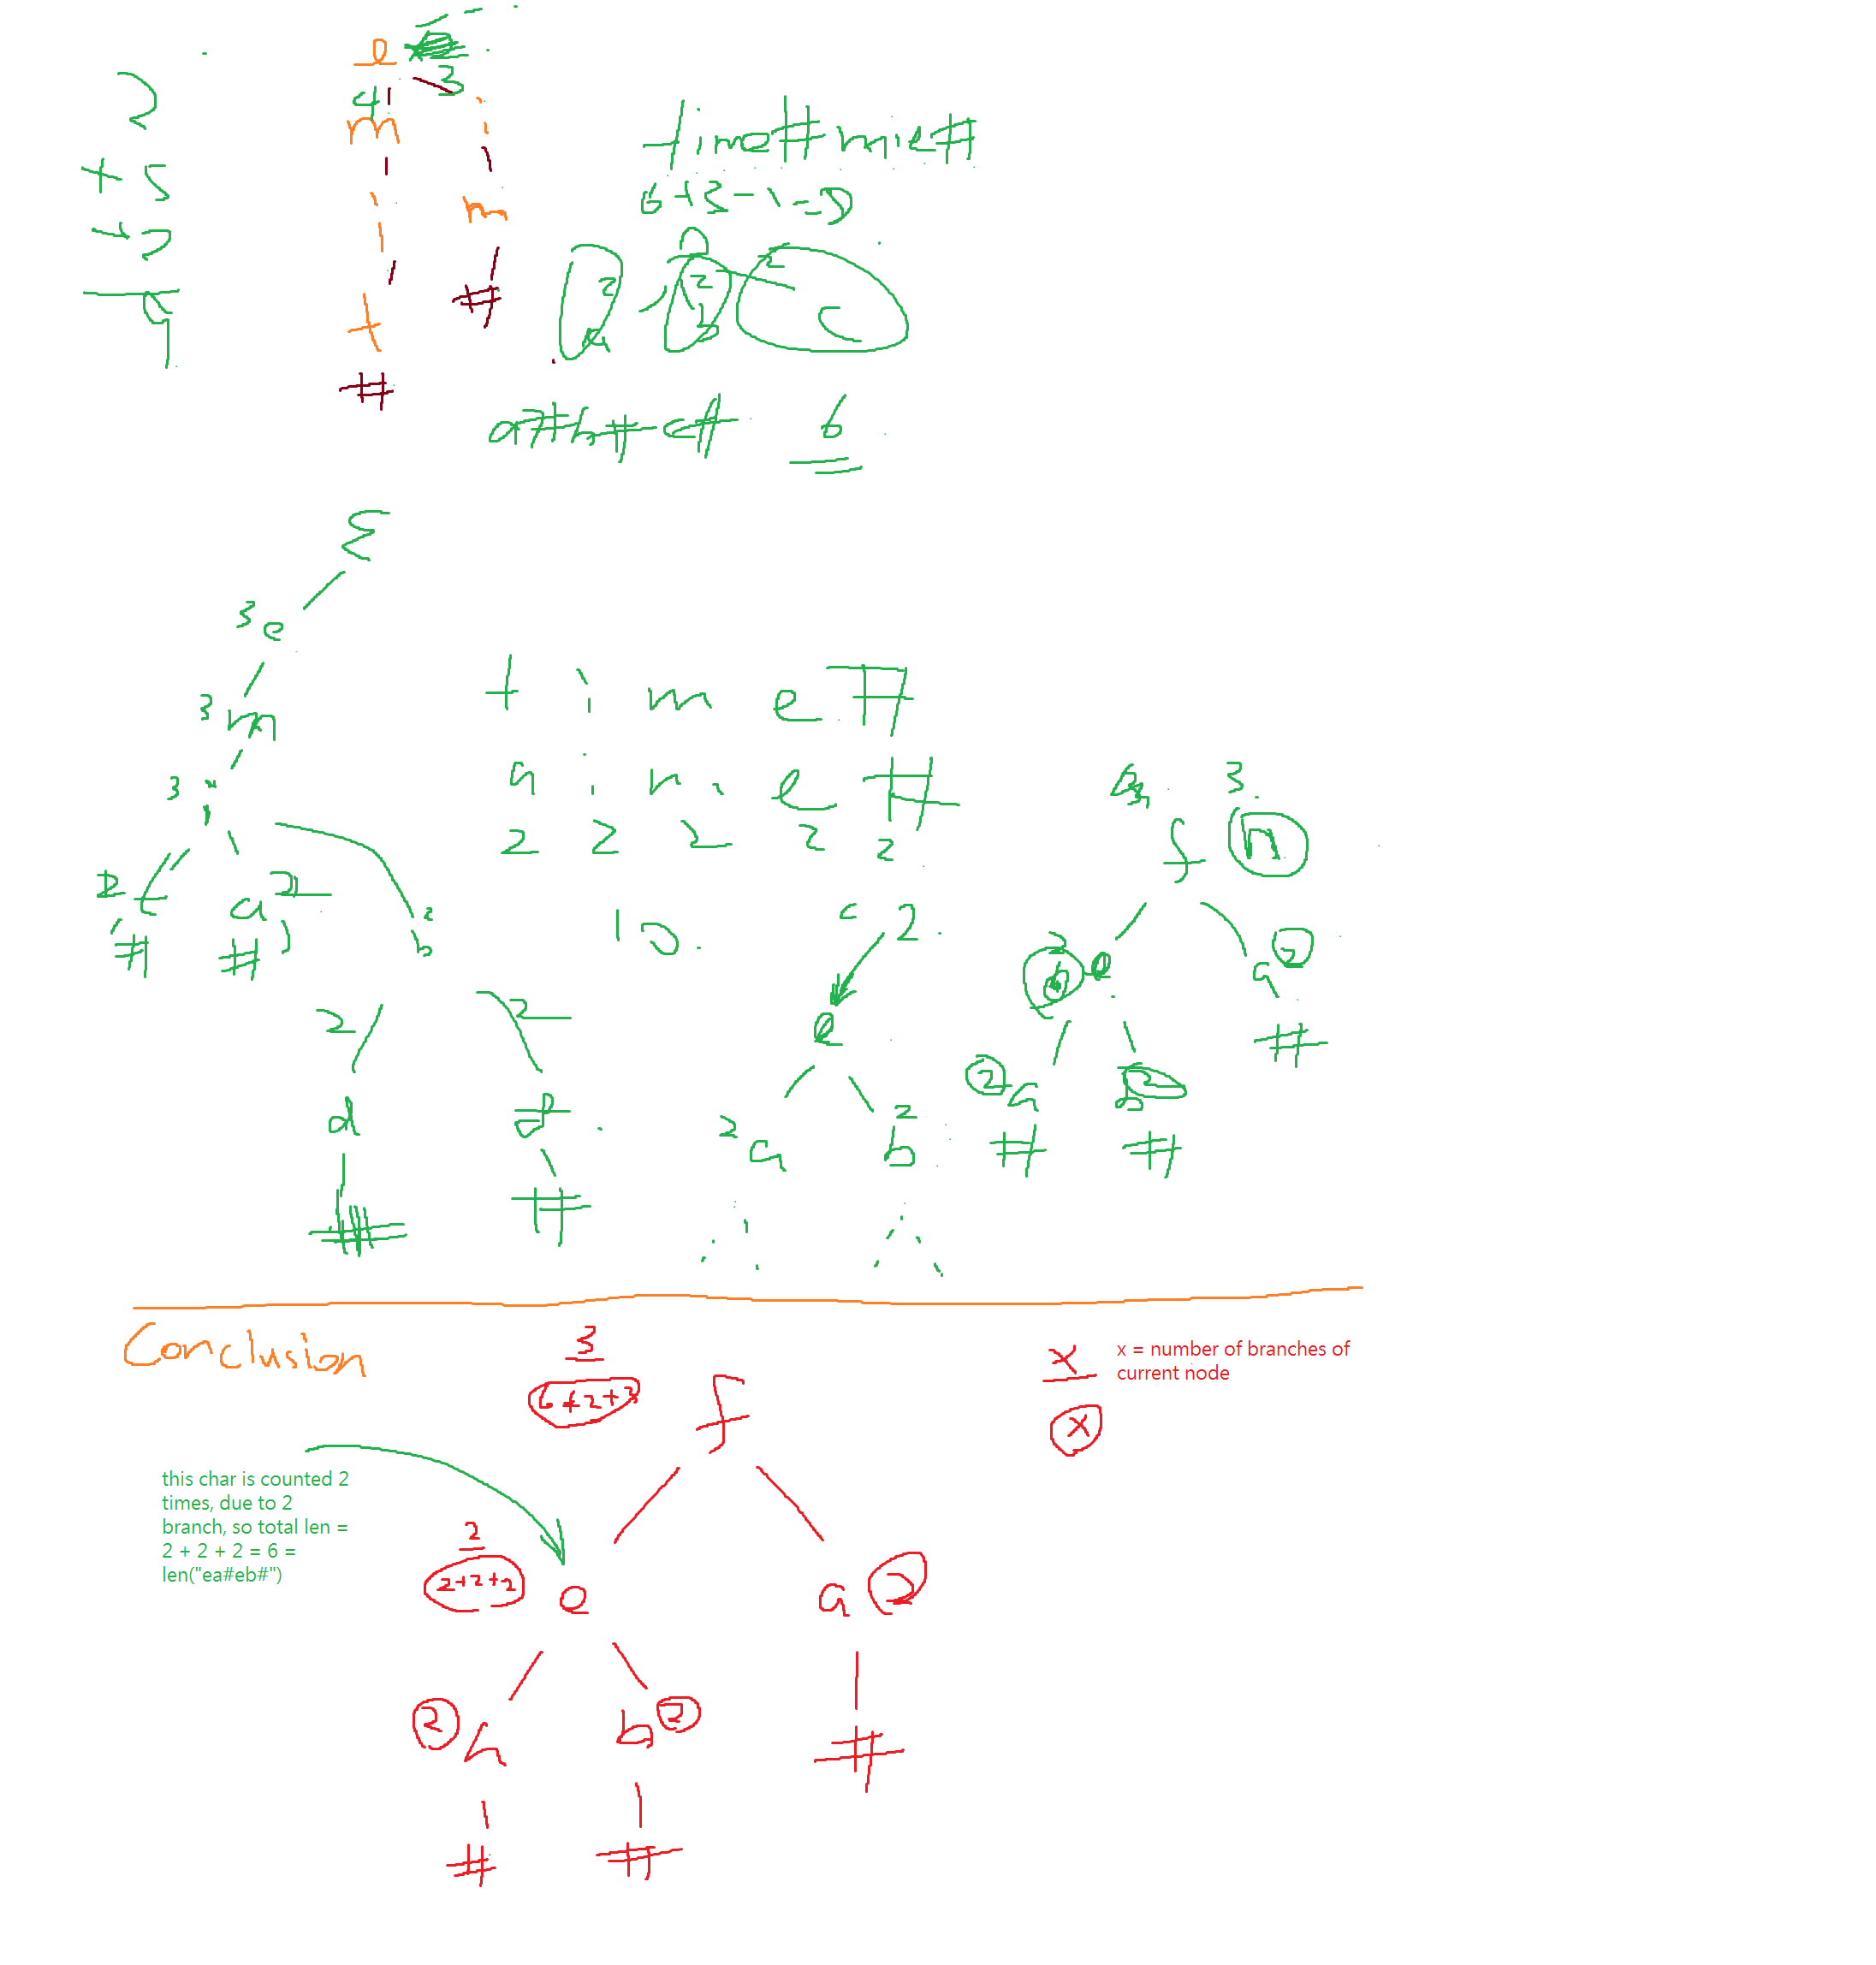 e
3
4
m
2
+ 5
+2
9
i
m
t
#
#
time#mie#
6+3-1=8
2
2
2
a
b
c
a#b#c#
6
Σ
3 e
3 m
3 i
2 t
a 2
2
b
#
#
t i m e #
2 2 2 2 2
10.
2
2
d
#
#
c 2.
e
2 a
2
b
3.
f
n
2
e
a 2
#
2 a
2
#
#
Conclusion
3
6+2+3
f
x
x = number of branches of
current node
x
this char is counted 2
times, due to 2
branch, so total len =
2 + 2 + 2 = 6 =
len("ea#eb#")
2
2+2+2
e
a 2
2 a
b 2
#
#
#